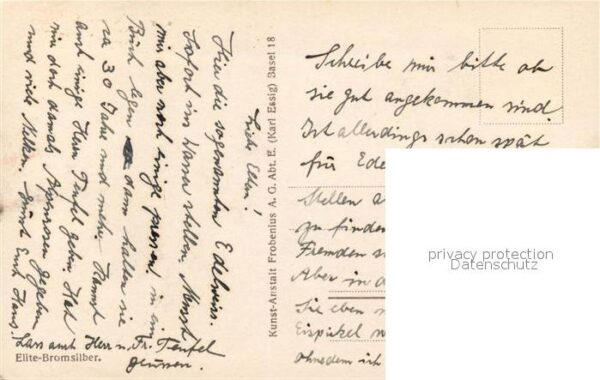 Liebe Eltern!
Hier die sogenannten Edelweiss.
Sofort ins Wasser stellen. Kannst
mir aber noch einige pressen! in ein
Buch legen dann halten sie
ca 30 Jahre und mehr. Kannst
auch einige Herrn Teufel geben. Hat
mir doch damals Alpenrosen gegeben
und viele Nelken. Grüsst Euch Hans!
Lass auch Herr u. Fr. Teufel
grüssen.
Elite-Bromsilber.
Kunst-Anstalt Frobenius A. G. Abt. E. (Karl Essig) Basel 18
Schreibe mir bitte ob
sie gut angekommen sind.
Ist allerdings schon spät
für Ede
Stellen a
zu finden
Fremden s
Aber in d
Sie eben
Eispickel
ohnedem ich
privacy protection
Datenschutz